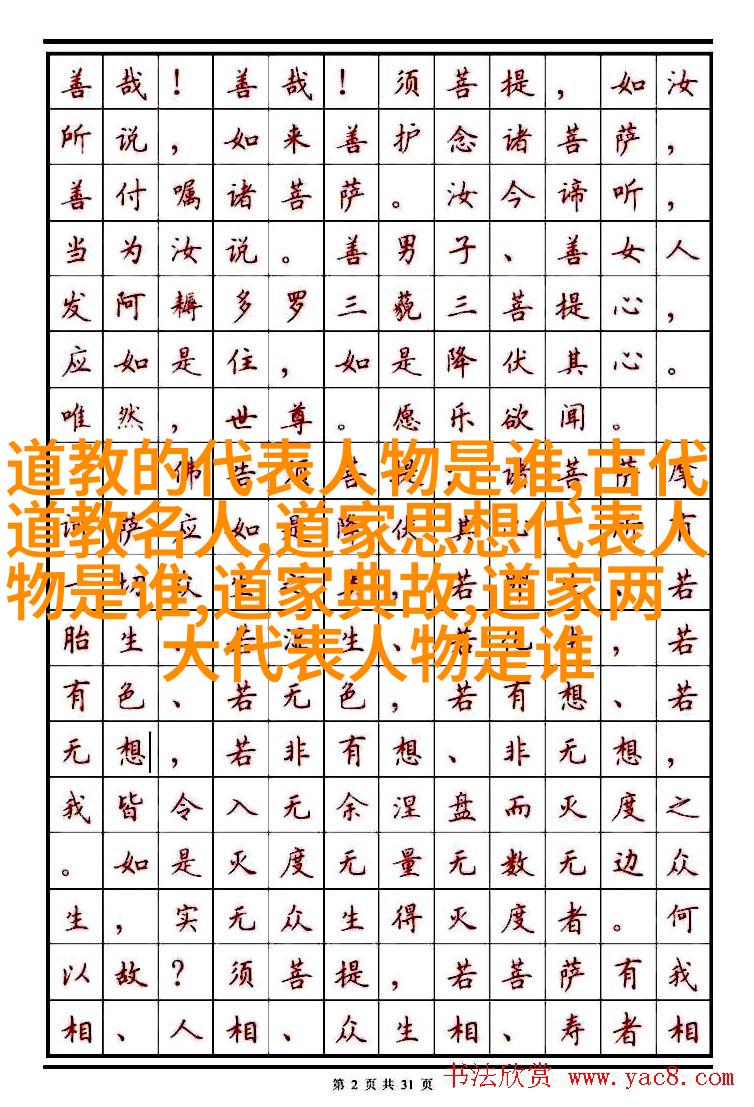 善哉！善哉！须菩提，如汝
所说，如来善护念诸菩萨，
善付嘱诸菩萨。汝今谛听，
当为汝说。善男子、善女人
发阿耨多罗三藐三菩提心，
应如是住，如是降伏其心。
唯然，世尊。愿乐欲闻。
道教的代表人物是谁,古代
道教名人,道家思想代表人
物是谁,道家典故,道家两
大代表人物是谁
佛告须菩提 诸菩萨摩
萨应如是降伏其心 有
切众生 若 若
胎生、若湿生、若化生，若
有色、若无色，若有想、若
无想，若非有想、非无想，
我皆令入无余涅盘而灭度之
。如是灭度无量无数无边众
生，实无众生得灭度者。何
以故？须菩提，若菩萨有我
相、人相、众生相、寿者相
第 2 页共 31 页
书法欣赏 www.yac8.com